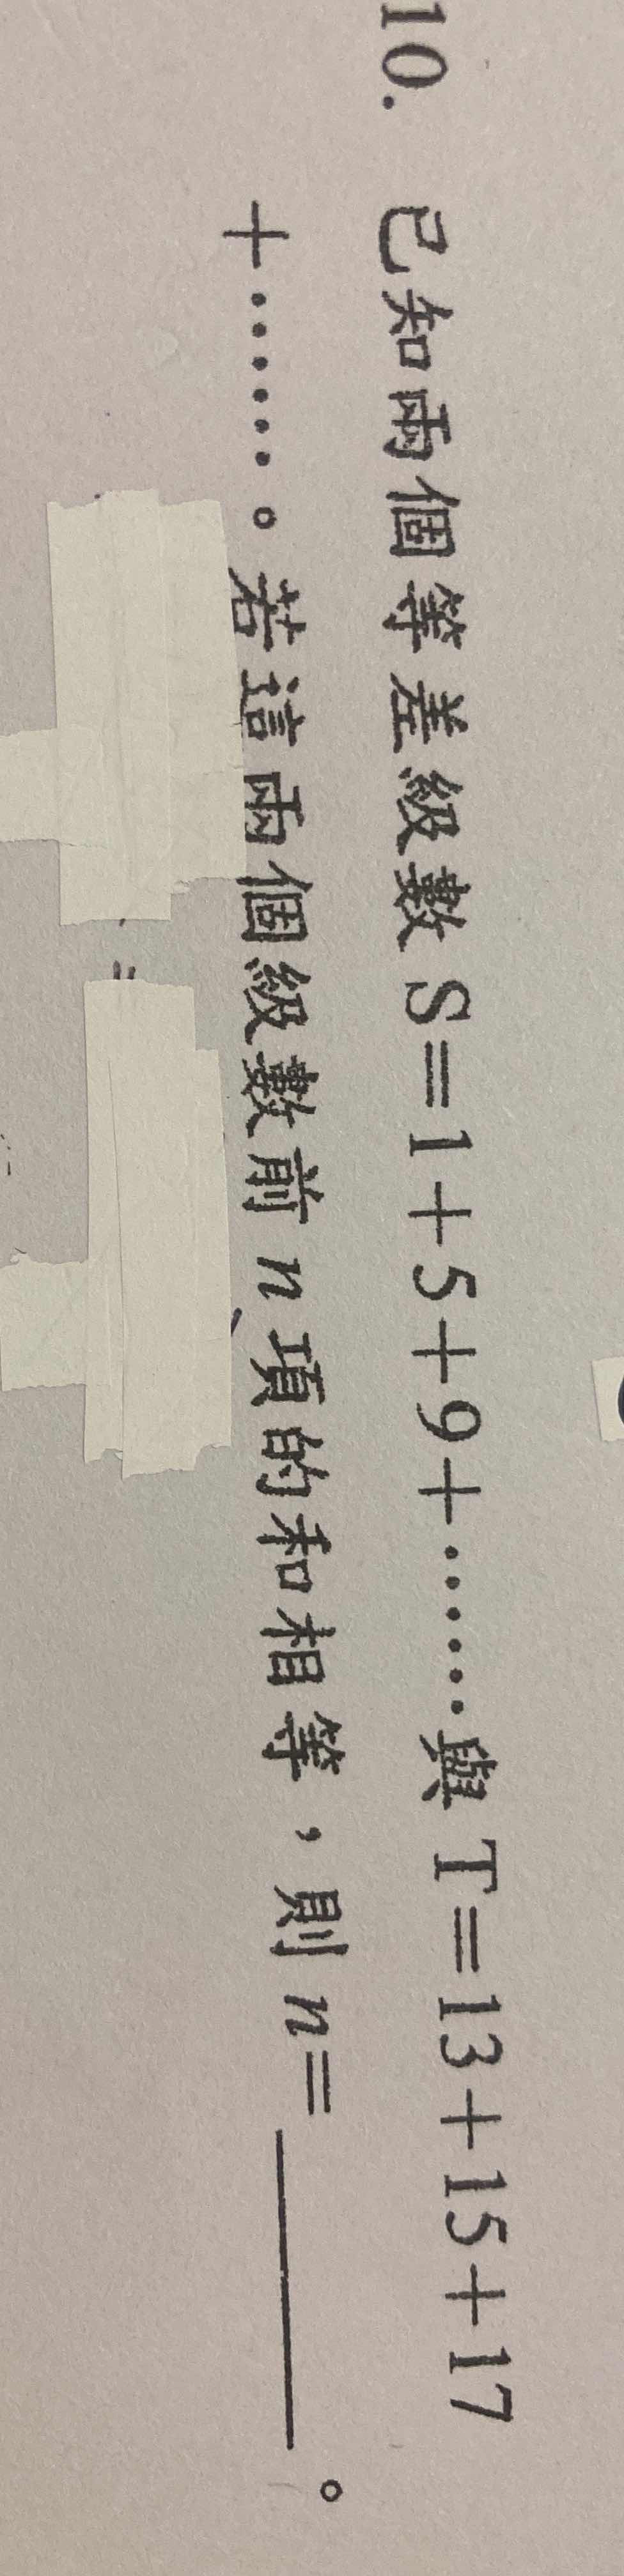 10. 已知兩個等差級數S=1+5+9+……與T=13+15+17
+……。若這兩個級數前n項的和相等，則n=＿＿＿＿。